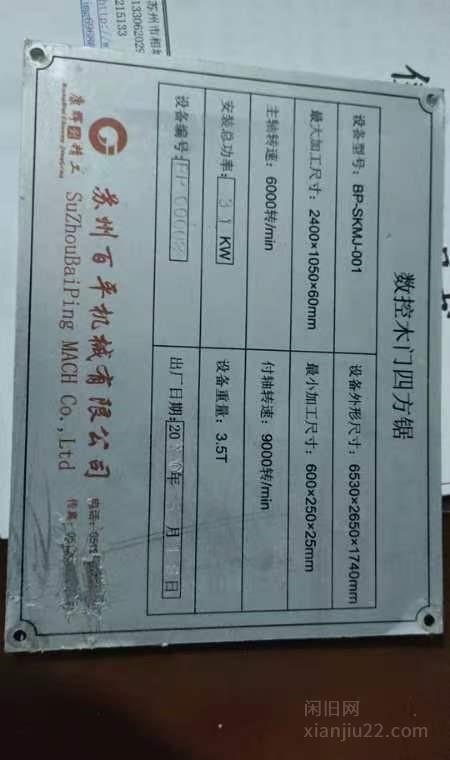 数控木门四方锯
设备型号: BP-SKMJ-001 设备外形尺寸: 6530×2650×1740mm
最大加工尺寸: 2400×1050×60mm 最小加工尺寸: 600×250×25mm
主轴转速: 6000转/min 付轴转速: 9000转/min
安装总功率: 31 KW 设备重量: 3.5T
设备编号: 出厂日期: 20 年 月 日
康辉精工
苏州百平机械有限公司
SuZhouBaiPing MACH Co.,Ltd
电话:
传真:
苏州市相
215133
闲旧网
xianjiu22.com